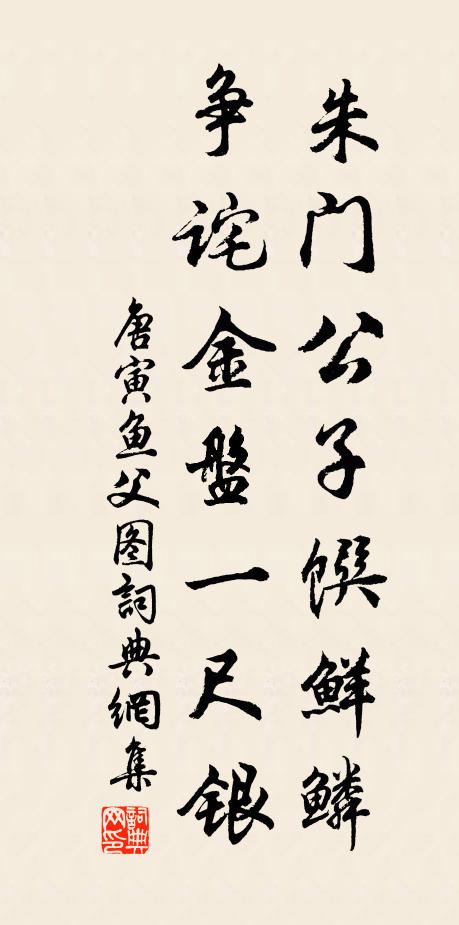 朱门公子馔鲜鳞
争诧金盘一尺银
唐寅鱼父图詞典網集
詞典
网印